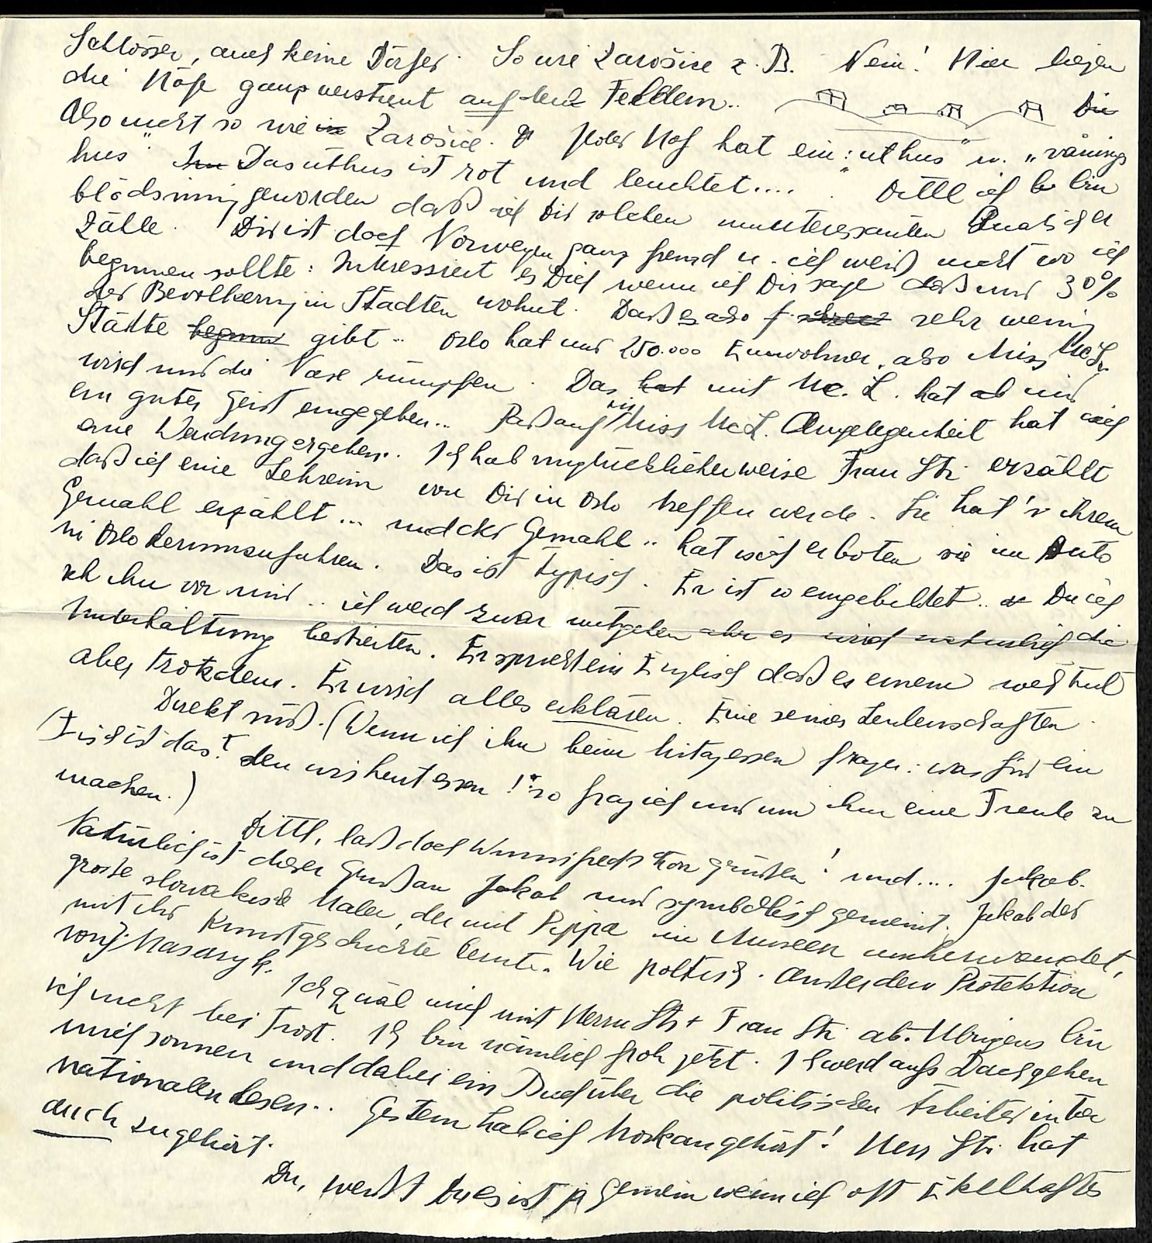 Schlösser, auch keine Dörfer. So wie Zarošice z. B. Nein! Hier liegen
die Höfe ganz verstreut auf den Feldern.. Die
Also nicht so wie in Zarošice. Jeder Hof hat ein: uthus" u. „vånings
hus" Im Das uthus ist rot und leuchtet.... Dittl ich bin
blödsinnig geworden daß ich Dir solchen uninteressanten Quatsch er
zähle. Dir ist doch Norwegen ganz fremd u. ich weiß nicht wo ich
beginnen sollte: Interessiert es Dich wenn ich Dir sage daß nur 30%
der Bevölkerung in Städten wohnt. Daß es also sehr wenig
Städte beginn gibt.. Oslo hat nur 250.000 Einwohner, also Miss McL.
wird nur die Nase rümpfen. Das hat mit Mc. L. hat ab mir
ein guter Geist eingegeben.. Paß auf in Miss McL. Angelegenheit hat sich
eine Wendung ergeben. Ich hab unglücklicherweise Frau Sti erzählt
daß ich eine Lehrerin von Dir in Oslo treffen werde. Sie hat's ihrem
Gemahl erzählt... und der Gemahl.. hat sich erboten sie im Auto
in Oslo herumzuführen. Das ist typisch. Er ist so eingebildet.. Du ich
seh ihn vor mir.. ich werd zwar mitgehen aber es wird natürlich die
Unterhaltung bestreiten. Er spricht ein Englisch daß es einem weh tut
aber trotzdem. Er wird alles erklären. Eine seiner Leidenschaften.
Direkt süß. (Wenn ich ihn beim Mittagessen frage: was für ein
Fisch ist das? den wir heut essen!" so frag ich nur um ihm eine Freude zu
machen.)
Dittl, laß doch Winnifred grüßen! und.... Jakob.
Natürlich ist dieser Gruß an Jakob nur symbolisch gemeint. Jakob der
große slowakische Maler, der mit Pippa in Museen umherwandet,
mit ihr Kunstgeschichte lernte. Wie politisch. Außerdem Protektion
von J. Masaryk.
Ich quäl mich mit Herrn Sti + Frau Sti ab. Übrigens bin
ich nicht bei Trost. Ich bin nämlich froh jetzt. Ich werd aufs Dach gehen
mich sonnen und dabei ein Buch über die politischen Arbeiter inter
nationalen lesen.. Gestern hab ich Moskau gehört! Herr Sti hat
auch zugehört.
Du, weißt Du es ist ja gemein wenn ich oft Ekelhaftes